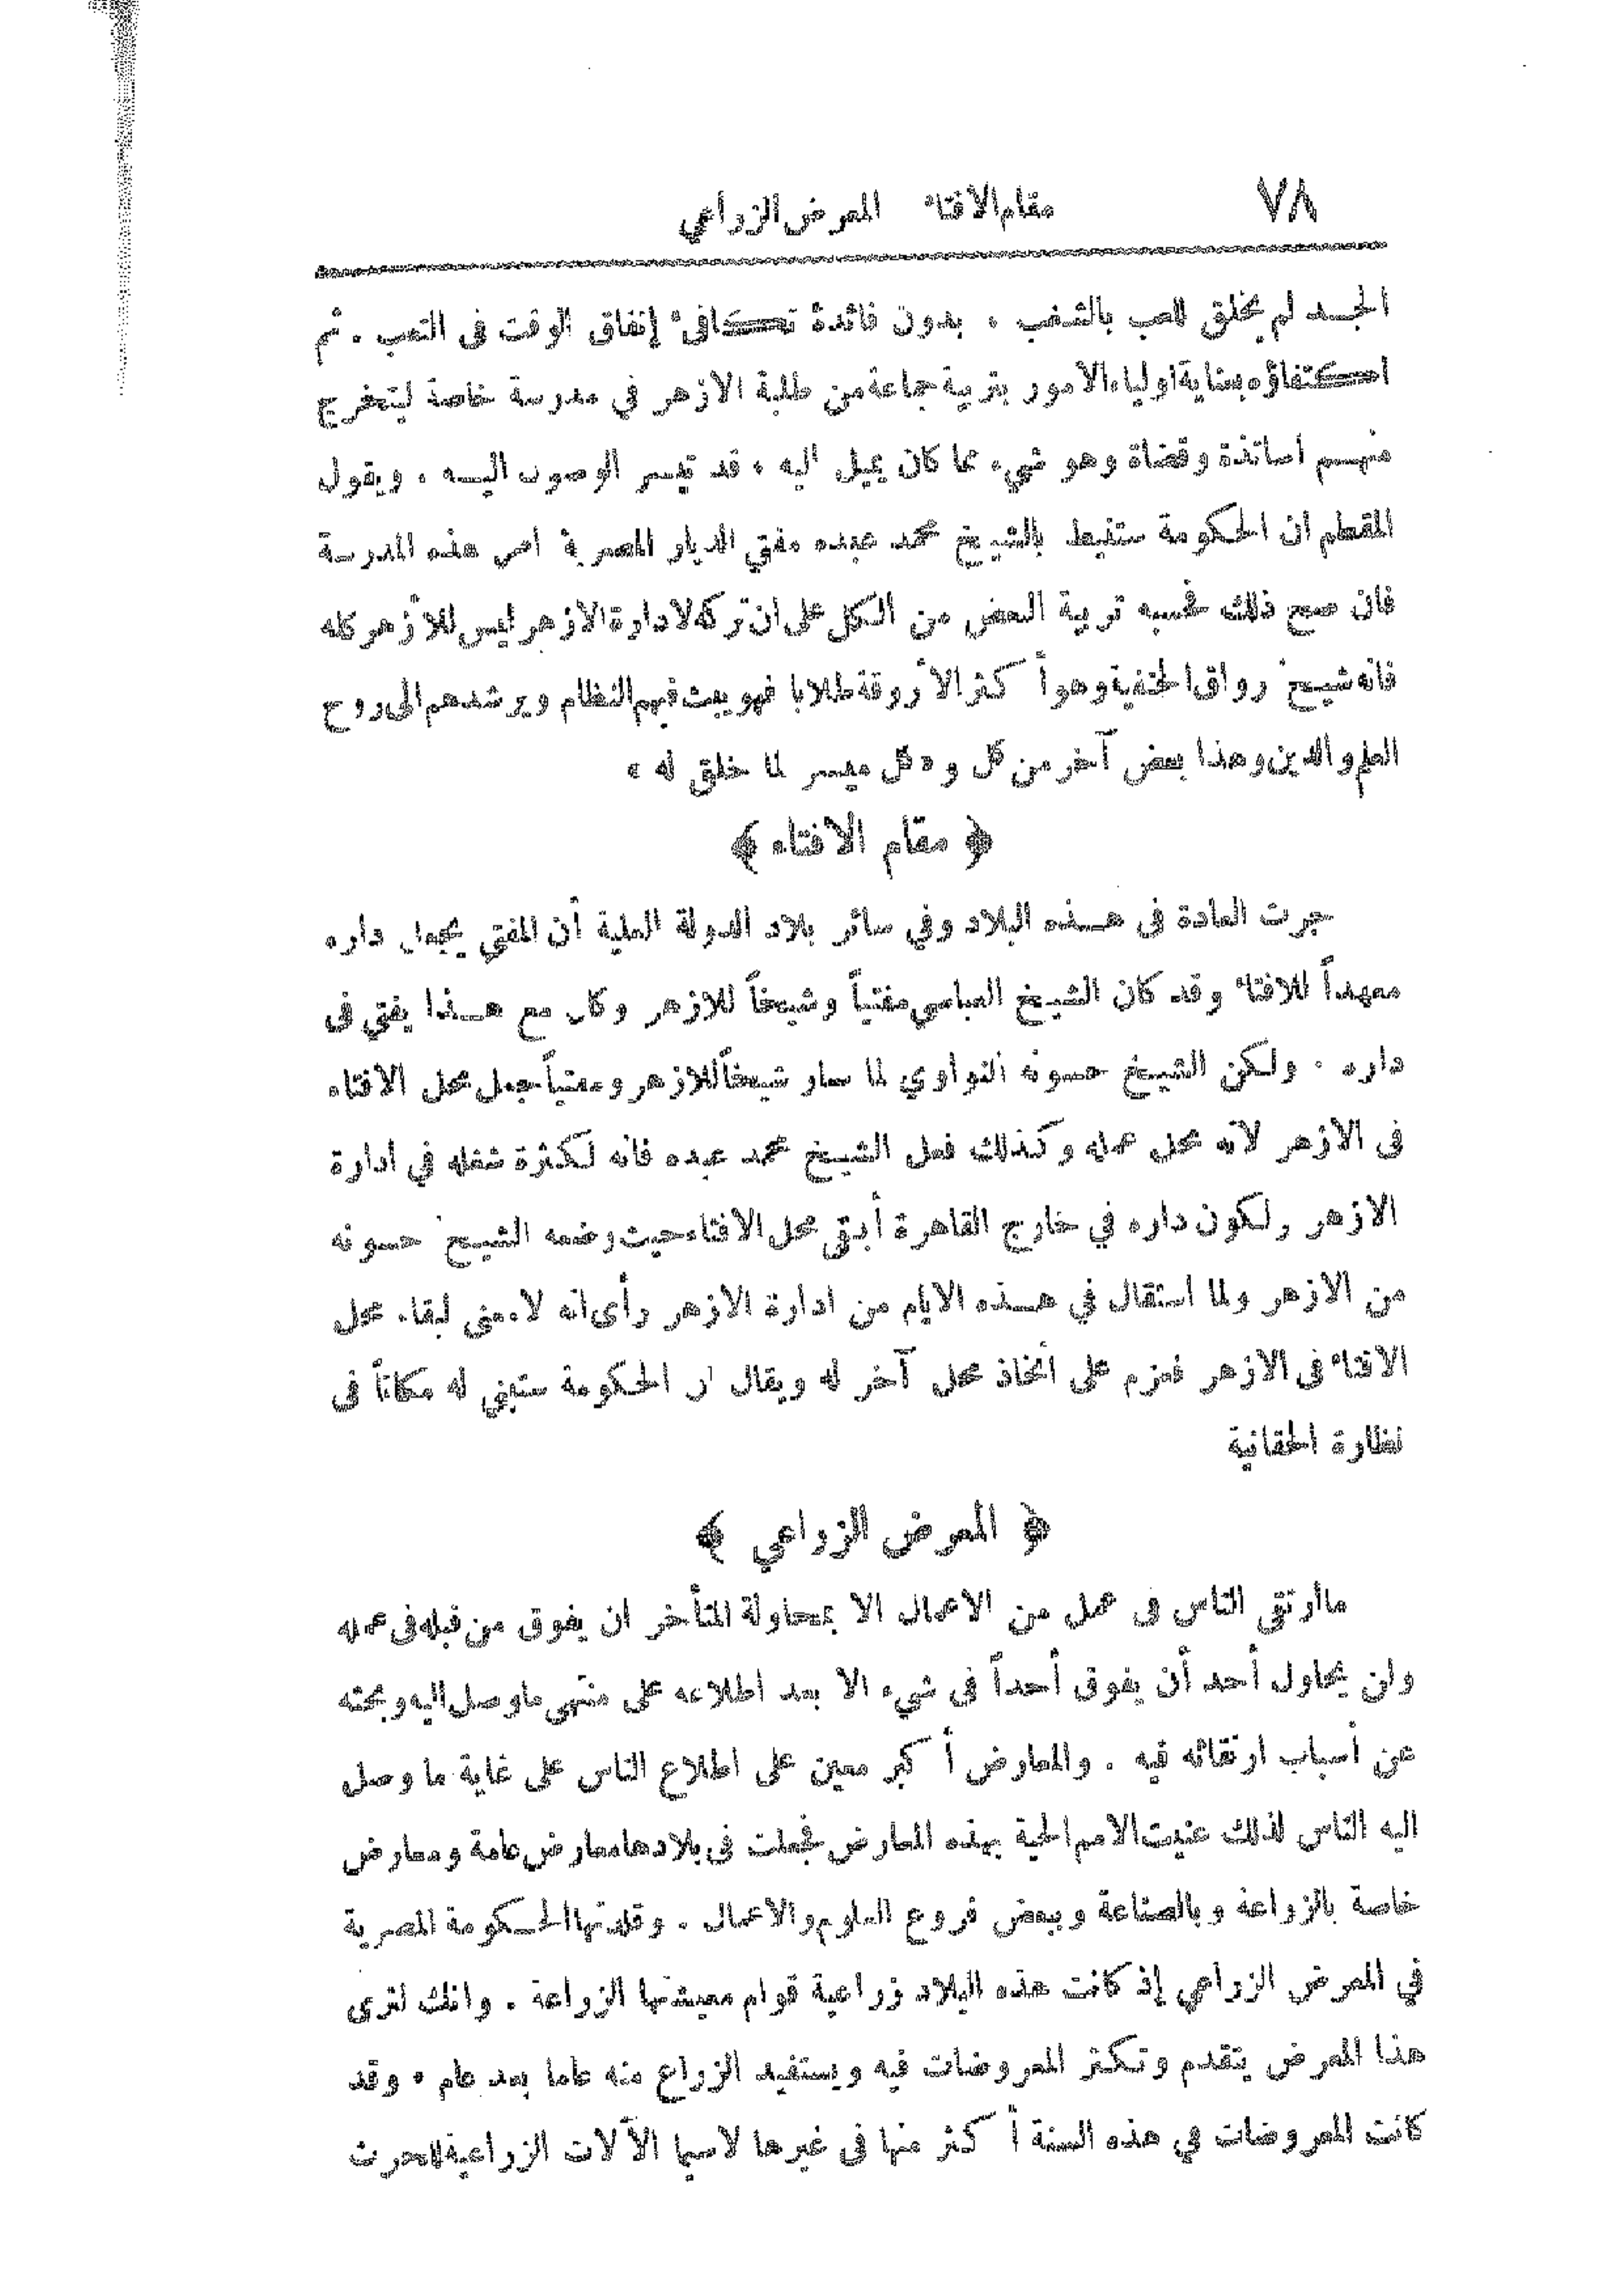 ٧٨ مقام الافتاء المعرض الزراعي
الجد لم يخلق للعب بالشغب . بدون فائدة تكافئ إنفاق الوقت فى التعب . ثم
اكتفاؤه بعناية اولياء الامور بتربية جماعة من طلبة الازهر في مدرسة خاصة ليتخرج
منهم اساتذة وقضاة وهو شيء مما كان يميل اليه ، قد تيسر الوصول اليه ، ويقول
المقطم ان الحكومة ستنيط بالشيخ محمد عبده مفتي الديار المصرية امر هذه المدرسة
فان صح ذلك فحسبه تربية البعض من الكل على ان تركه لادارة الازهر ليس للأزهر كله
فانه شيخ رواق الحنفية وهو أكثر الأروقة طلابا فهو يبث فيهم النظام ويرشدهم الى روح
العلم والدين وهذا بعض آخر من كل و «كل ميسر لما خلق له »
﴿ مقام الافتاء ﴾
جرت العادة فى هذه البلاد وفي سائر بلاد الدولة العلية أن المفتي يجعل داره
معهداً للافتاء وقد كان الشيخ العباسي مفتياً وشيخاً للازهر وكان مع هذا يفتي فى
داره . ولكن الشيخ حسونه النواوي لما صار شيخاً للازهر ومفتياً جعل محل الافتاء
فى الازهر لانه محل عمله وكذلك فعل الشيخ محمد عبده فانه لكثرة شغله في ادارة
الازهر ولكون داره في خارج القاهرة أبقى محل الافتاء حيث وضعه الشيخ حسونه
من الازهر ولما استقال في هذه الايام من ادارة الازهر رأى انه لا معنى لبقاء محل
الافتاء فى الازهر فعزم على اتخاذ محل آخر له ويقال ان الحكومة ستبني له مكاناً فى
نظارة الحقانية
﴿ المعرض الزراعي ﴾
ما ارتقى الناس فى عمل من الاعمال الا بمحاولة المتأخر ان يفوق من قبله فى عمله
ولن يحاول أحد أن يفوق أحداً فى شيء الا بعد اطلاعه على منتهى ما وصل اليه وبحثه
عن أسباب ارتقائه فيه . والمعارض أكبر معين على اطلاع الناس على غاية ما وصل
اليه الناس لذلك عنيت الامم الحية بهذه المعارض فجعلت فى بلادها معارض عامة ومعارض
خاصة بالزراعة وبالصناعة وببعض فروع العلوم والاعمال . وقلدتها الحكومة المصرية
في المعرض الزراعي إذ كانت هذه البلاد زراعية قوام معيشتها الزراعة . وانك لترى
هذا المعرض يتقدم وتكثر المعروضات فيه ويستفيد الزراع منه عاما بعد عام ، وقد
كانت المعروضات في هذه السنة أكثر منها فى غيرها لاسيما الآلات الزراعية للحرث